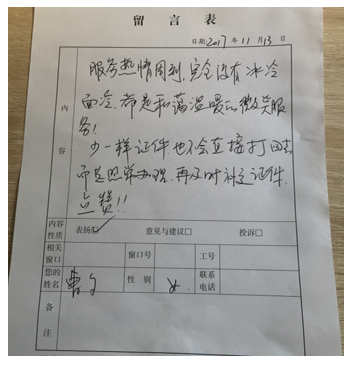 留言表
日期2017年11月13日
内容
服务热情周到,完全没有冰冷
面容.都是和蔼温暖的微笑服
务!
少一样证件也不会直接打回去
而是照常办理.再及时补交证件.
点赞!!
内容性质 表扬☑ 意见与建议□ 投诉□
相关窗口 窗口号 工号
您的姓名 曹 性别 女. 联系电话
备注